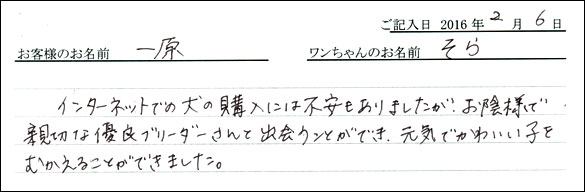 ご記入日 2016 年 2 月 6 日
お客様のお名前 一原 ワンちゃんのお名前 そら
インターネットでの犬の購入には不安もありましたが、お陰様で
親切な優良ブリーダーさんと出会うことができ、元気でかわいい子を
むかえることができました。